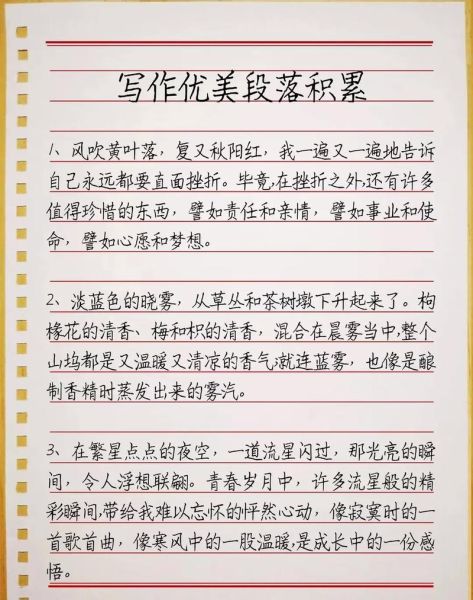 写作优美段落积累
1、风吹黄叶落，复又秋阳红，我一遍又一遍地告诉
自己永远都要直面挫折。毕竟,在挫折之外,还有许多
值得珍惜的东西，譬如责任和亲情，譬如事业和使
命，譬如心愿和梦想。
2、淡蓝色的晓雾，从草丛和茶树墩下升起来了。枸
橼花的清香、梅和枳的清香，混合在晨雾当中,整个
山坞都是又温暖又清凉的香气;就连蓝雾，也像是酿
制香精时蒸发出来的雾汽。
3、在繁星点点的夜空，一道流星闪过，那光亮的瞬
间，令人浮想联翩。青春岁月中，许多流星般的精
彩瞬间,带给我难以忘怀的怦然心动，像寂寞时的一
首歌首曲，像寒风中的一股温暖,是成长中的一份感
悟。